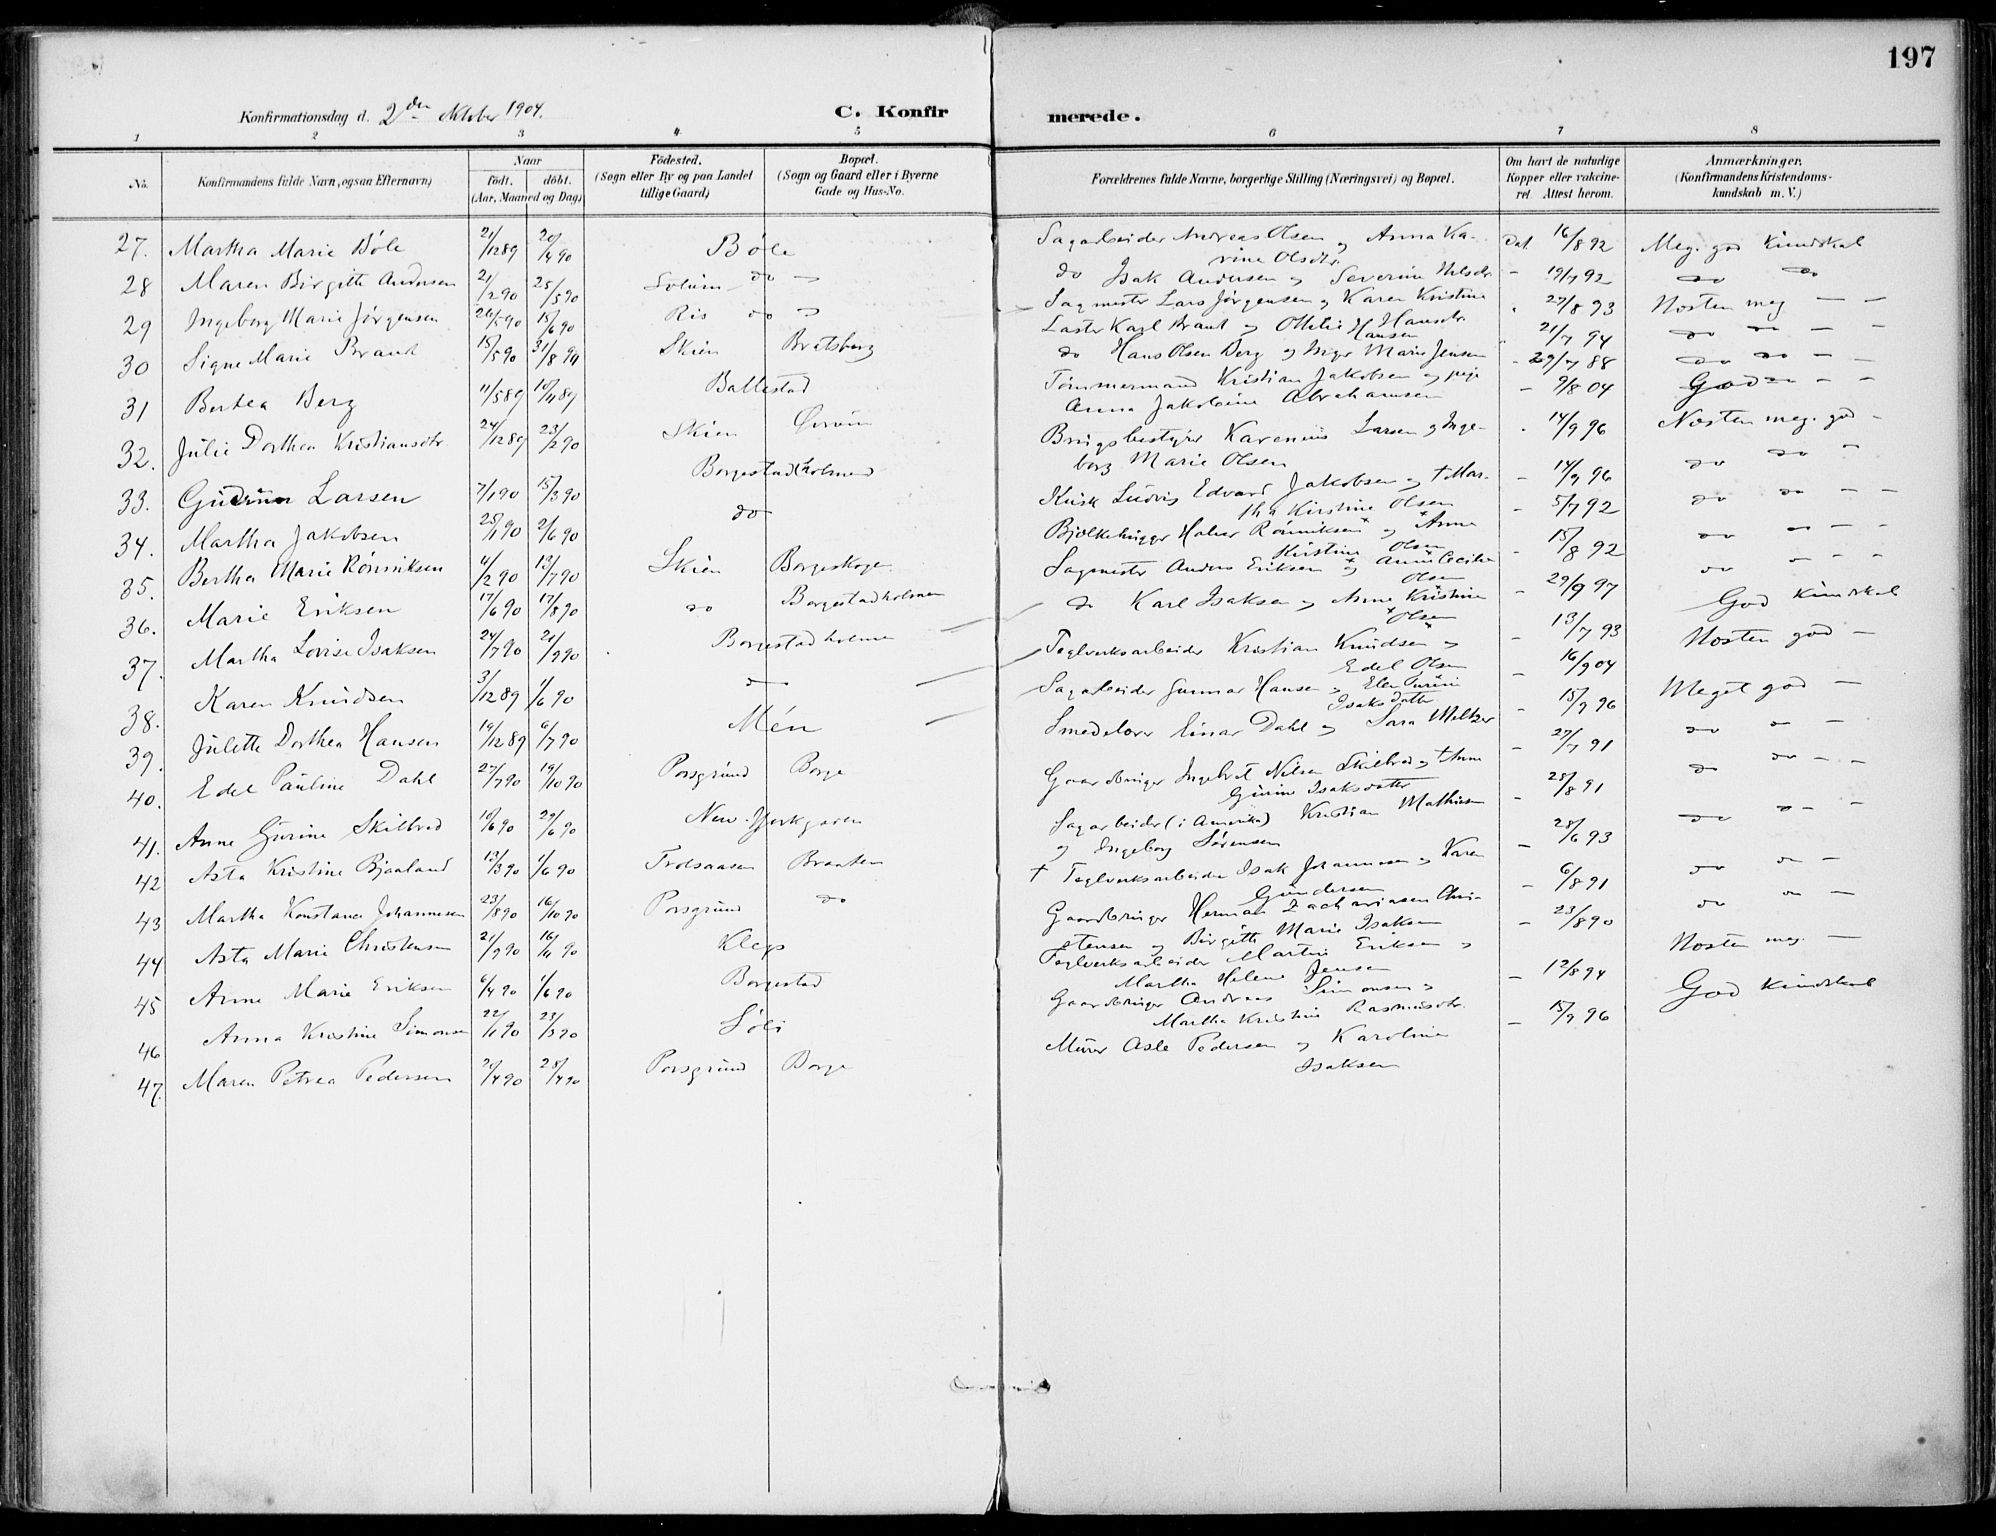 197
Konfirmationsdag d. 2den Oktober 1904.
C. Konfirmerede.
1 2 3 4 5 6 7 8
No. Konfirmandens fulde Navn, ogsaa Efternavn) Naar födt. döbt. (Aar, Maaned og Dag) Födested. (Sogn eller By og paa Landet tillige Gaard) Bopæl. (Sogn og Gaard eller i Byerne Gade og Hus-No. Forældrenes fulde Navne, borgerlige Stilling (Næringsvei) og Bopæl. Om havt de naturlige Kopper eller vakcineret. Attest herom. Anmærkninger. (Konfirmandens Kristendomskundskab m. V.)
27. Martha Marie Bøle 21/12 89 20/4 90 Bøle Sagarbeider Andreas Olsen og Anna Karine Olsdtr. Dat. 16/8 92 Meg. god Kundskab
28 Maren Birgitte Andersen 21/2 90 25/5 90 Solum do do Isak Andersen og Severine Nilsdr. - 19/7 92 do do
29 Ingeborg Marie Jørgensen 26/5 90 15/6 90 Ris do Sagmester Lars Jørgensen og Karen Kristine Hansen 27/8 93 Næsten meg - -
30 Signe Marie Brant 15/5 90 31/8 90 Skien Bratsberg Laster Karl Brant og Ottilie Hansdtr. 21/7 94 do do - -
31 Berthea Berg 11/5 89 10/11 89 Ballestad do Hans Olsen Berg og Inger Marie Jensen - 29/7 88 do do - -
32. Julie Dorthea Kristiansdtr. 24/12 89 23/2 90 Skien Ørum Tømmermand Kristian Jakobsen og pige Anna Jakobine Abrahamsen - 9/8 04 God - -
33. Gudrun Larsen 7/1 90 15/3 90 Borgestad(holmen) Brugsbestyrer Karenius Larsen og Ingeborg Marie Olsen 14/9 96 Næsten meg. god -
34. Martha Jakobsen 25/1 90 2/6 90 do Kusk Ludvig Edvard Jakobsen og † Martha Kirstine Olsen - 14/9 96 do do -
35. Bertha Marie Rönniksen 11/2 90 13/7 90 Skien Borgeskoge Bjelkehugger Halvor Rönniksen og Anne Kirstine Olsen - 5/7 92 do do - -
36. Marie Eriksen 17/6 90 17/8 90 do Borgestadholmen Sagmester Anders Eriksen og Anne Cecilie Olsen - 15/8 92 do - -
37. Martha Lovise Isaksen 24/7 90 21/9 90 Borgestadholmen do Karl Isaksen og Anne Kristine Olsen - 29/9 97 do - -
38. Karen Knudsen 3/12 89 1/6 90 do Teglverksarbeider Kristian Knudsen og Edel Olsen - 13/7 93 God Kundskab
39. Julette Dorthea Hansen 14/12 89 6/7 90 Mén Sagarbeider Gunnar Hansen og Elen Isaksdatter - 16/9 04 Næsten god -
40. Edel Pauline Dahl 27/7 90 19/10 90 Porsgrund Borge Smedelærer Einar Dahl og Sara Meltzer - 15/9 96 Meget god -
41. Anne Gurine Skilbred 10/6 90 29/6 90 New-Yorkgaden Gaardbruger Ingebret Nilsen Skilbred og † Anne Gurine Isaksdatter - 27/7 91 do -
42 Asta Kristine Bjaaland 13/3 90 1/6 90 Trolsaasen Braaten Sagarbeider (i Amerika) Kristian Mathisen og Ingeborg Sörensen - 25/8 91 do do - -
43 Martha Konstance Johannesen 23/8 90 16/10 90 Porsgrund do † Teglverksarbeider Isak Johannesen og Karen Gundersen - 28/6 93 do - -
44 Asta Marie Christensen 21/9 90 16/11 90 Kleps Gaardbruger Herman Zachariasen Christensen og Birgitte Marie Isaksen - 6/8 91 do -
45 Anne Marie Eriksen 6/4 90 1/6 90 Borgestad Teglverksarbeider Martin Eriksen og Martha Helene Jensen - 23/8 90 do -
46 Anna Kristine Simonsen 22/1 90 23/3 90 Søli Gaardbruger Andreas Simonsen og Martha Kristine Rasmusdtr. - 12/8 94 Næsten meg. -
47. Maren Petrea Pedersen 2/4 90 28/4 90 Porsgrund Borge Murer Asle Pedersen og Karoline Isaksen - 15/9 96 God Kundskab